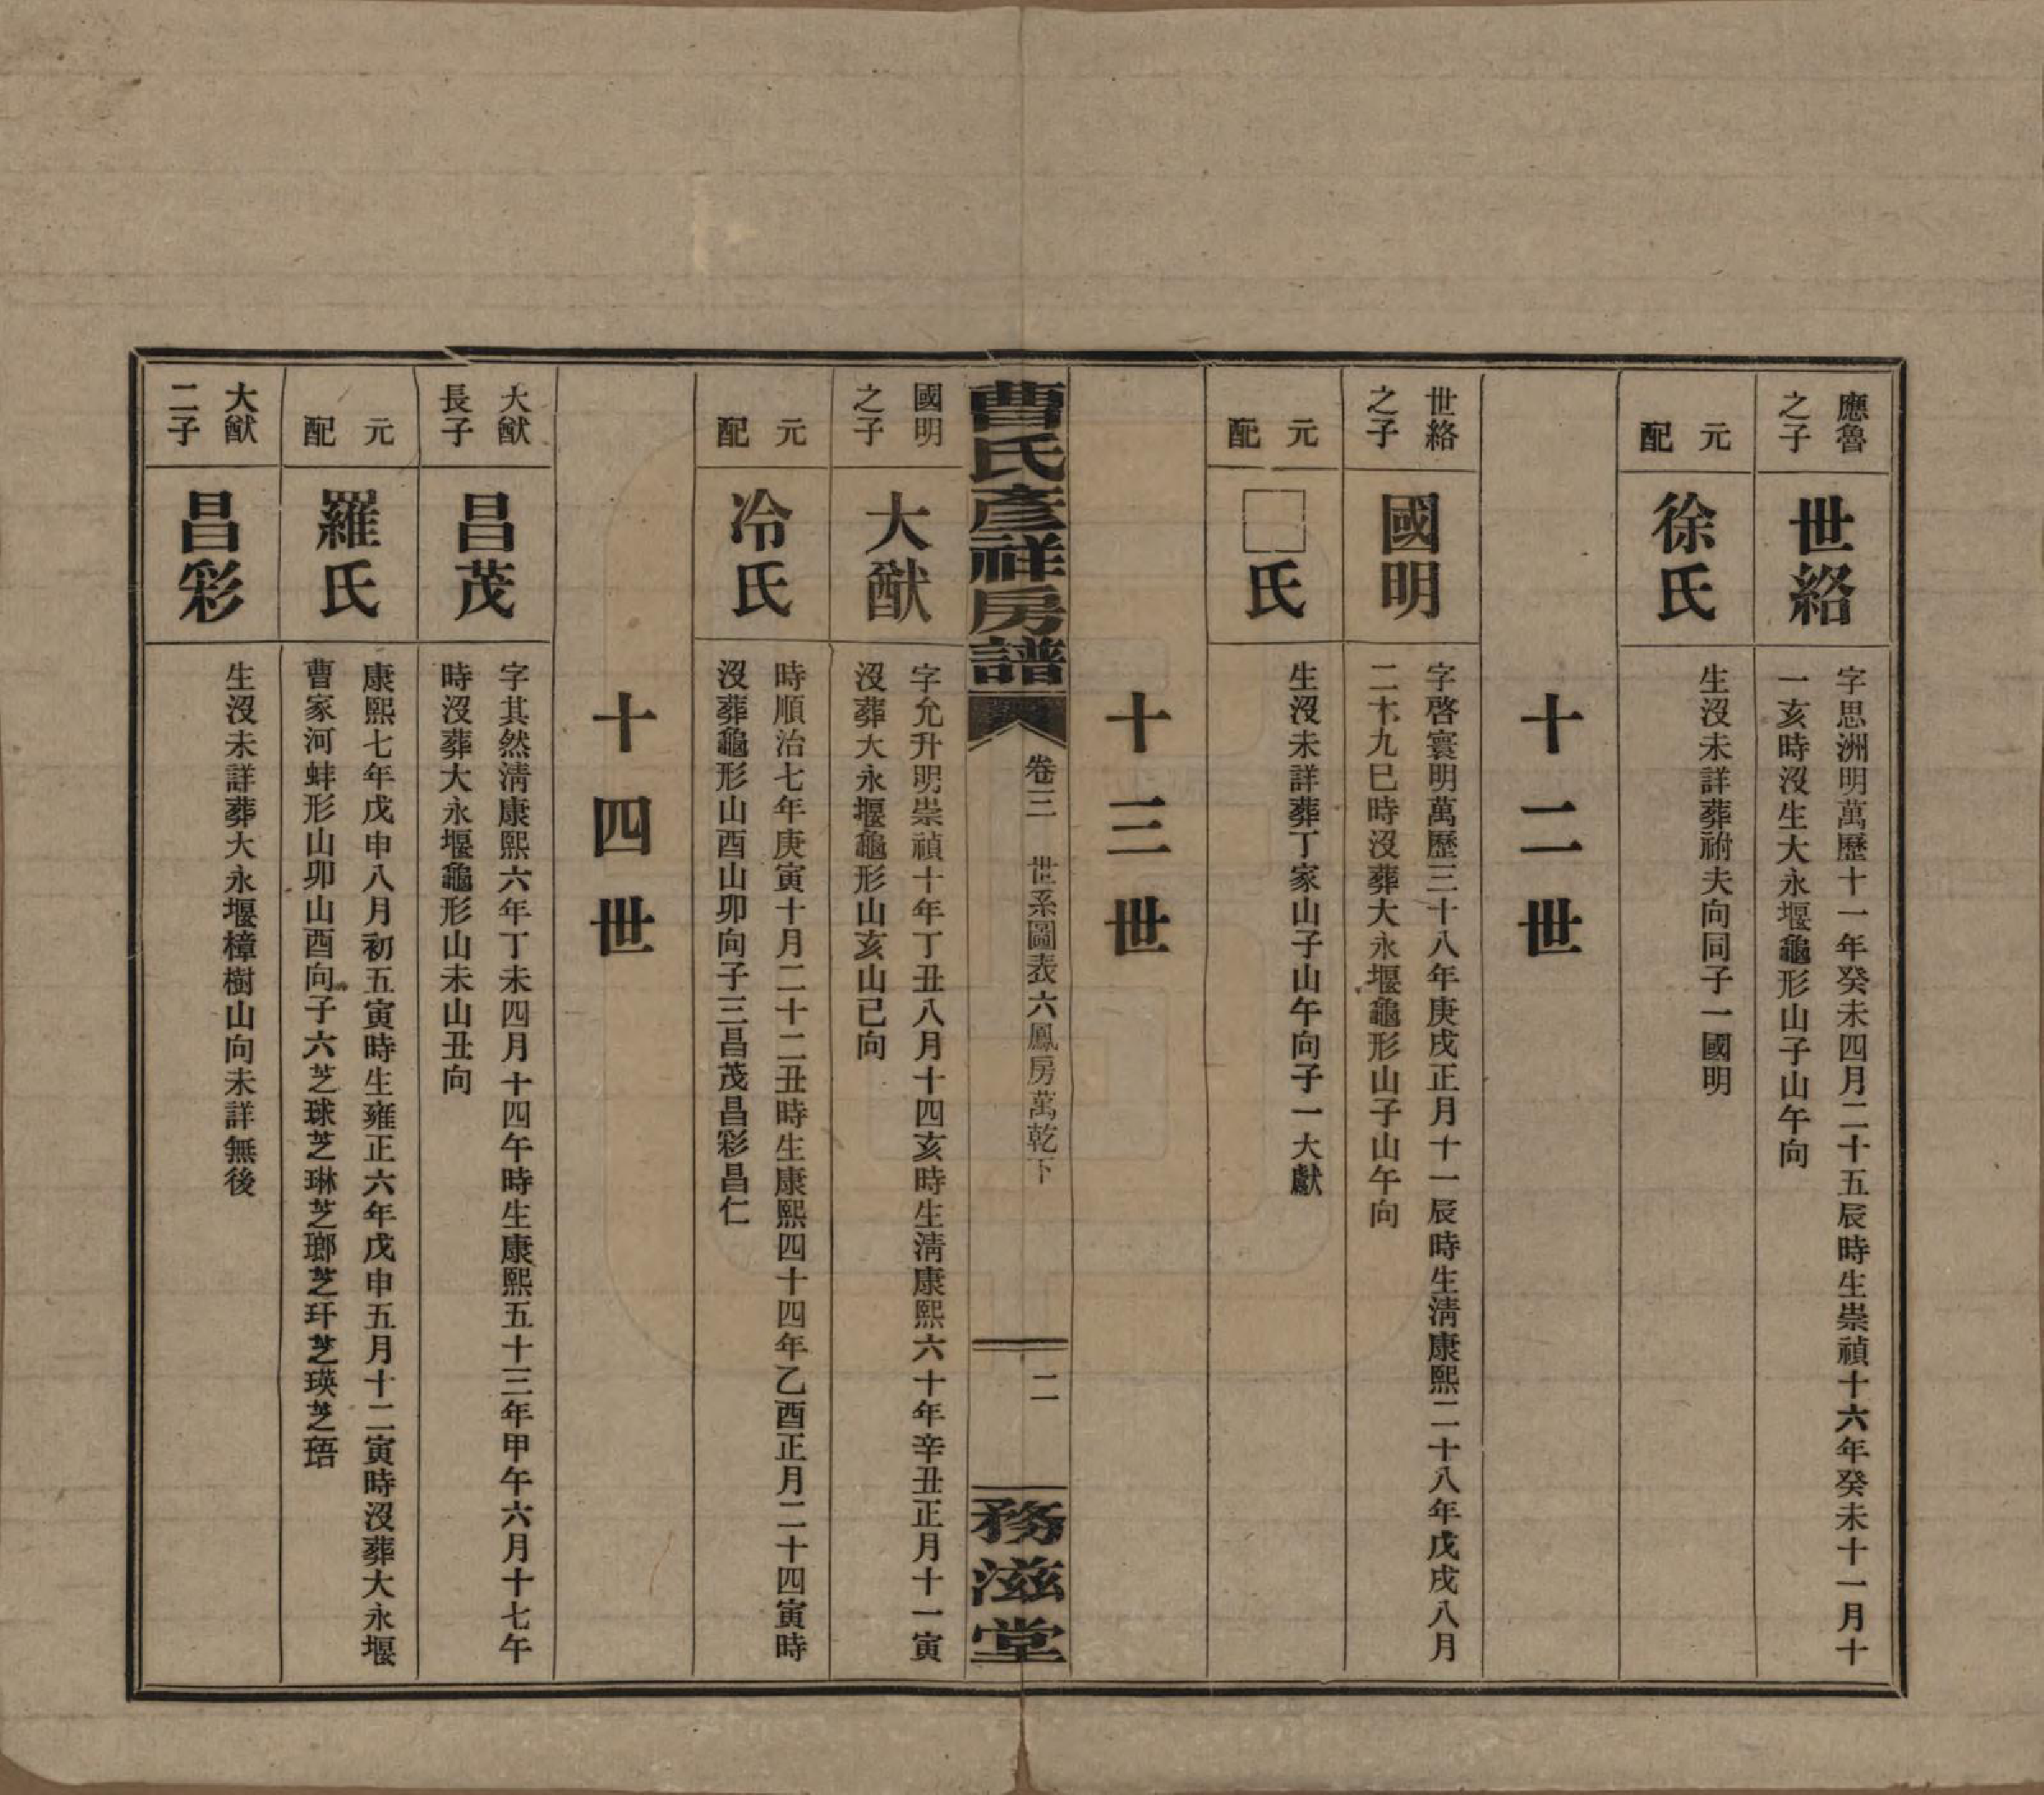 應魯
之子
世絡
字思洲明萬歷十一年癸未四月二十五辰時生崇禎十六年癸未十一月十
一亥時沒生大永堰龜形山子山午向
元
配
徐氏
生沒未詳葬祔夫向同子一國明
十二世
世絡
之子
國明
字啓寰明萬歷三十八年庚戌正月十一辰時生淸康熙二十八年戊戌八月
二十九巳時沒葬大永堰龜形山子山午向
元
配
□氏
生沒未詳葬丁家山子山午向子一大獻
十三世
曹氏彥祥房譜
卷三 世系圖表六鳳房萬乾下
二
務滋堂
國明
之子
大猷
字允升明崇禎十年丁丑八月十四亥時生淸康熙六十年辛丑正月十一寅
沒葬大永堰龜形山亥山已向
元
配
冷氏
時順治七年庚寅十月二十二丑時生康熙四十四年乙酉正月二十四寅時
沒葬龜形山酉山卯向子三昌茂昌彩昌仁
十四世
大猷
長子
昌茂
字其然淸康熙六年丁未四月十四午時生康熙五十三年甲午六月十七午
時沒葬大永堰龜形山未山丑向
元
配
羅氏
康熙七年戊申八月初五寅時生雍正六年戊申五月十二寅時沒葬大永堰
曹家河蚌形山卯山酉向子六芝球芝琳芝瑯芝玕芝瑛芝珸
大猷
二子
昌彩
生沒未詳葬大永堰樟樹山向未詳無後